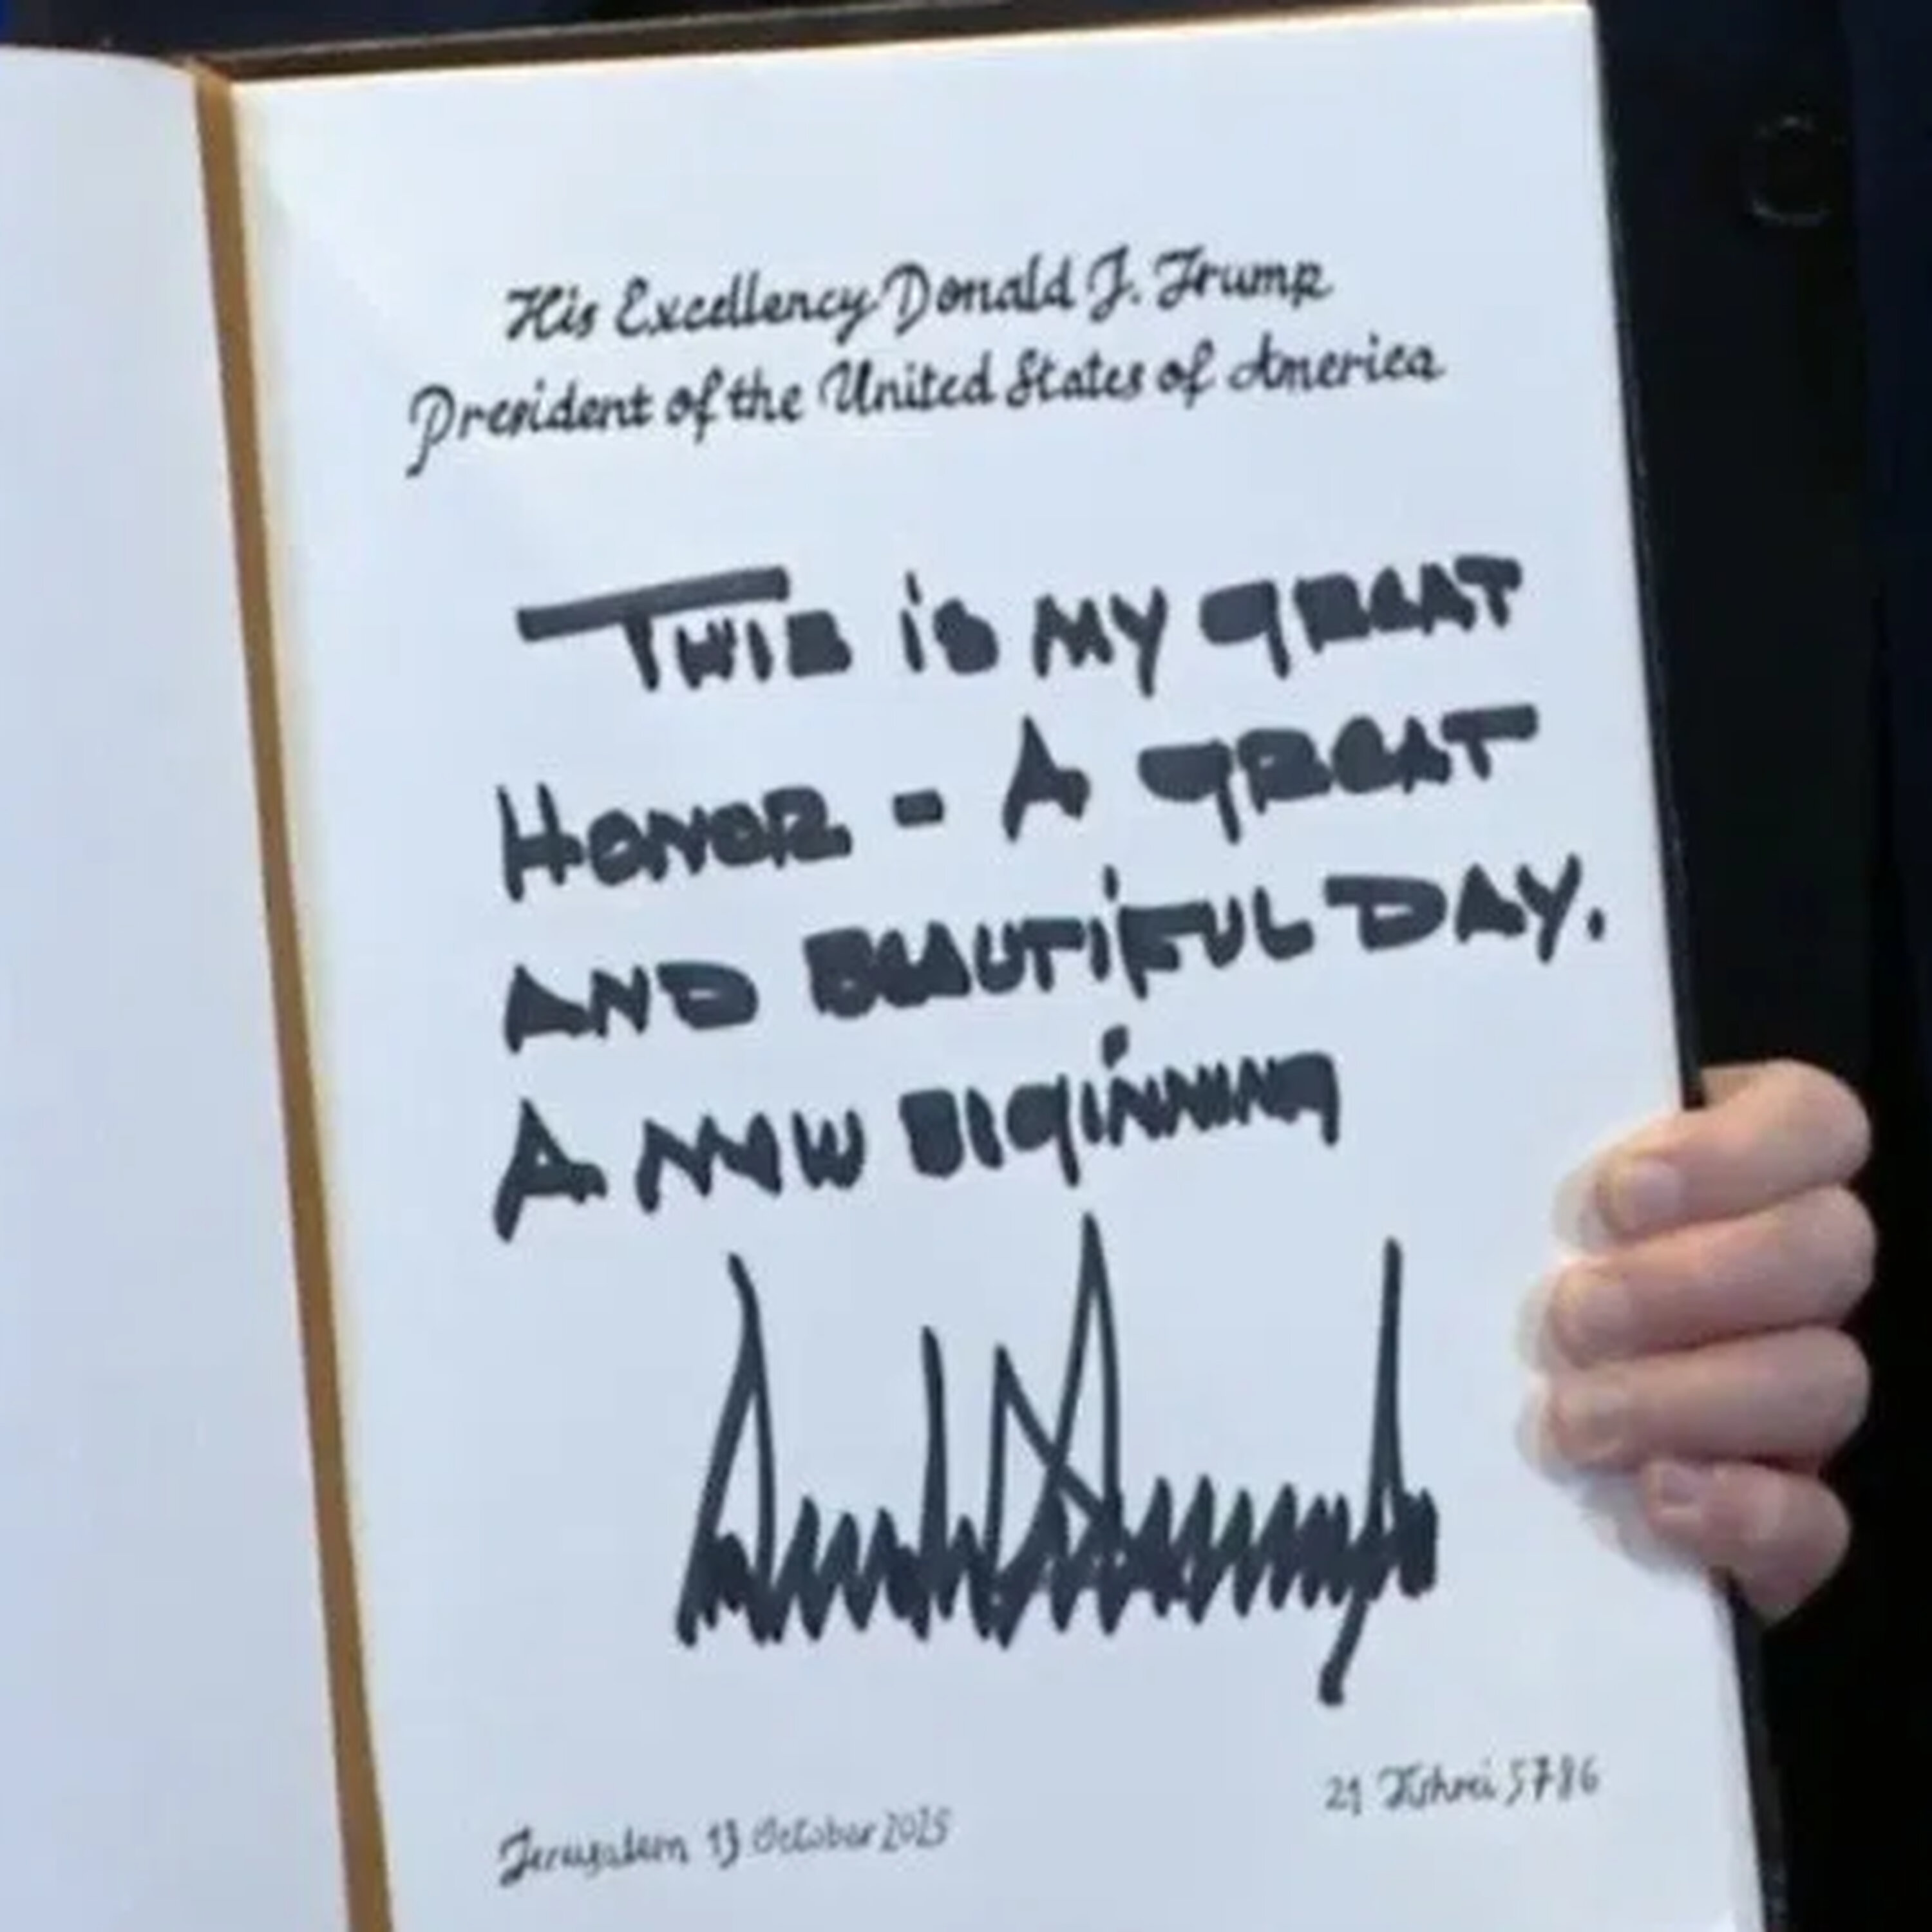 His Excellency Donald J. Trump
President of the United States of America
THIS is MY GREAT
HONOR - A GREAT
AND BEAUTiFUL DAY.
A NEW BEGiNNING
Jerusalem 13 October 2025
21 Tishrei 5786